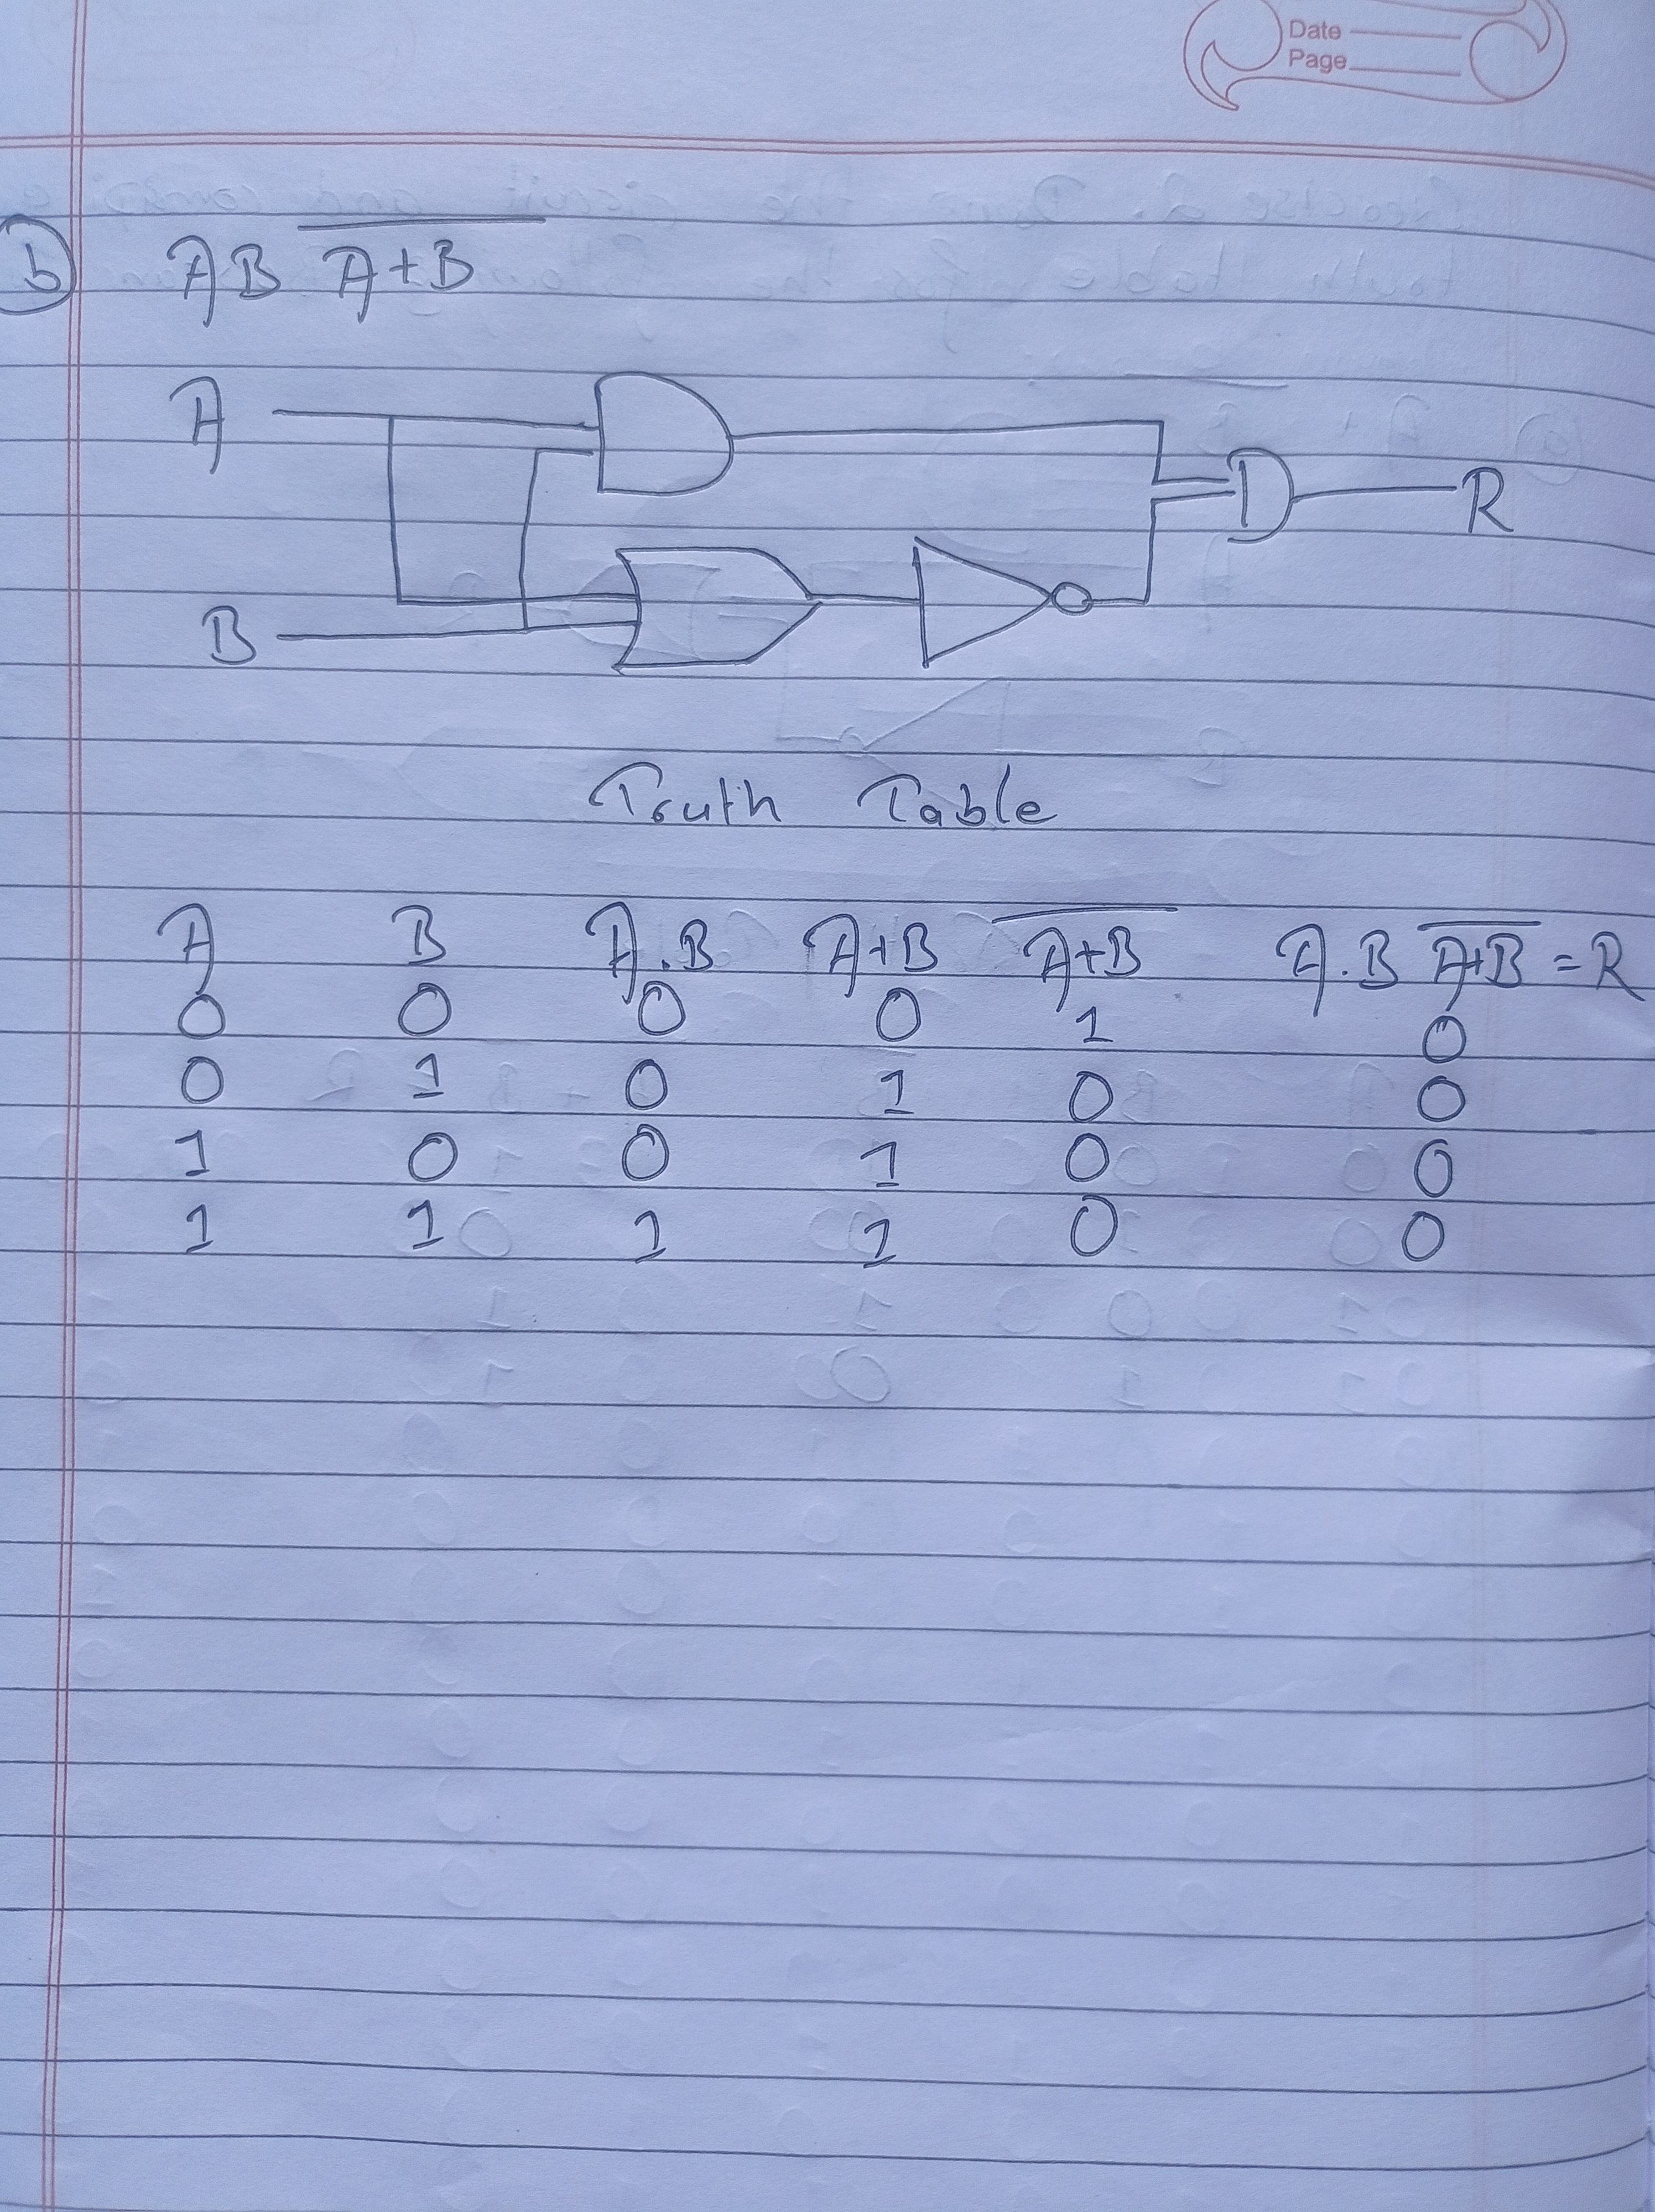 Date
Page
b AB A̅+̅B̅
A
R
B
Truth Table
A B A.B A+B A̅+̅B̅ A.B A̅+̅B̅ = R
0 0 0 0 1 0
0 1 0 1 0 0
1 0 0 1 0 0
1 1 1 1 0 0